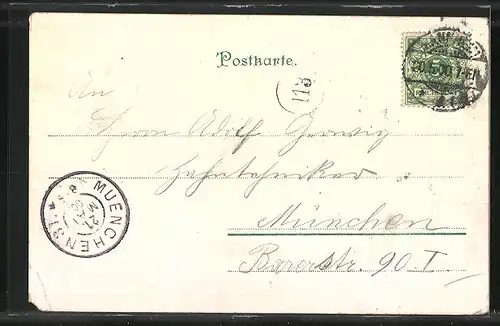 Postkarte.
113
An
Herrn Adolf Gerwig
Zahntechniker
München
Barerstr. 90 I
MUENCHEN 31.